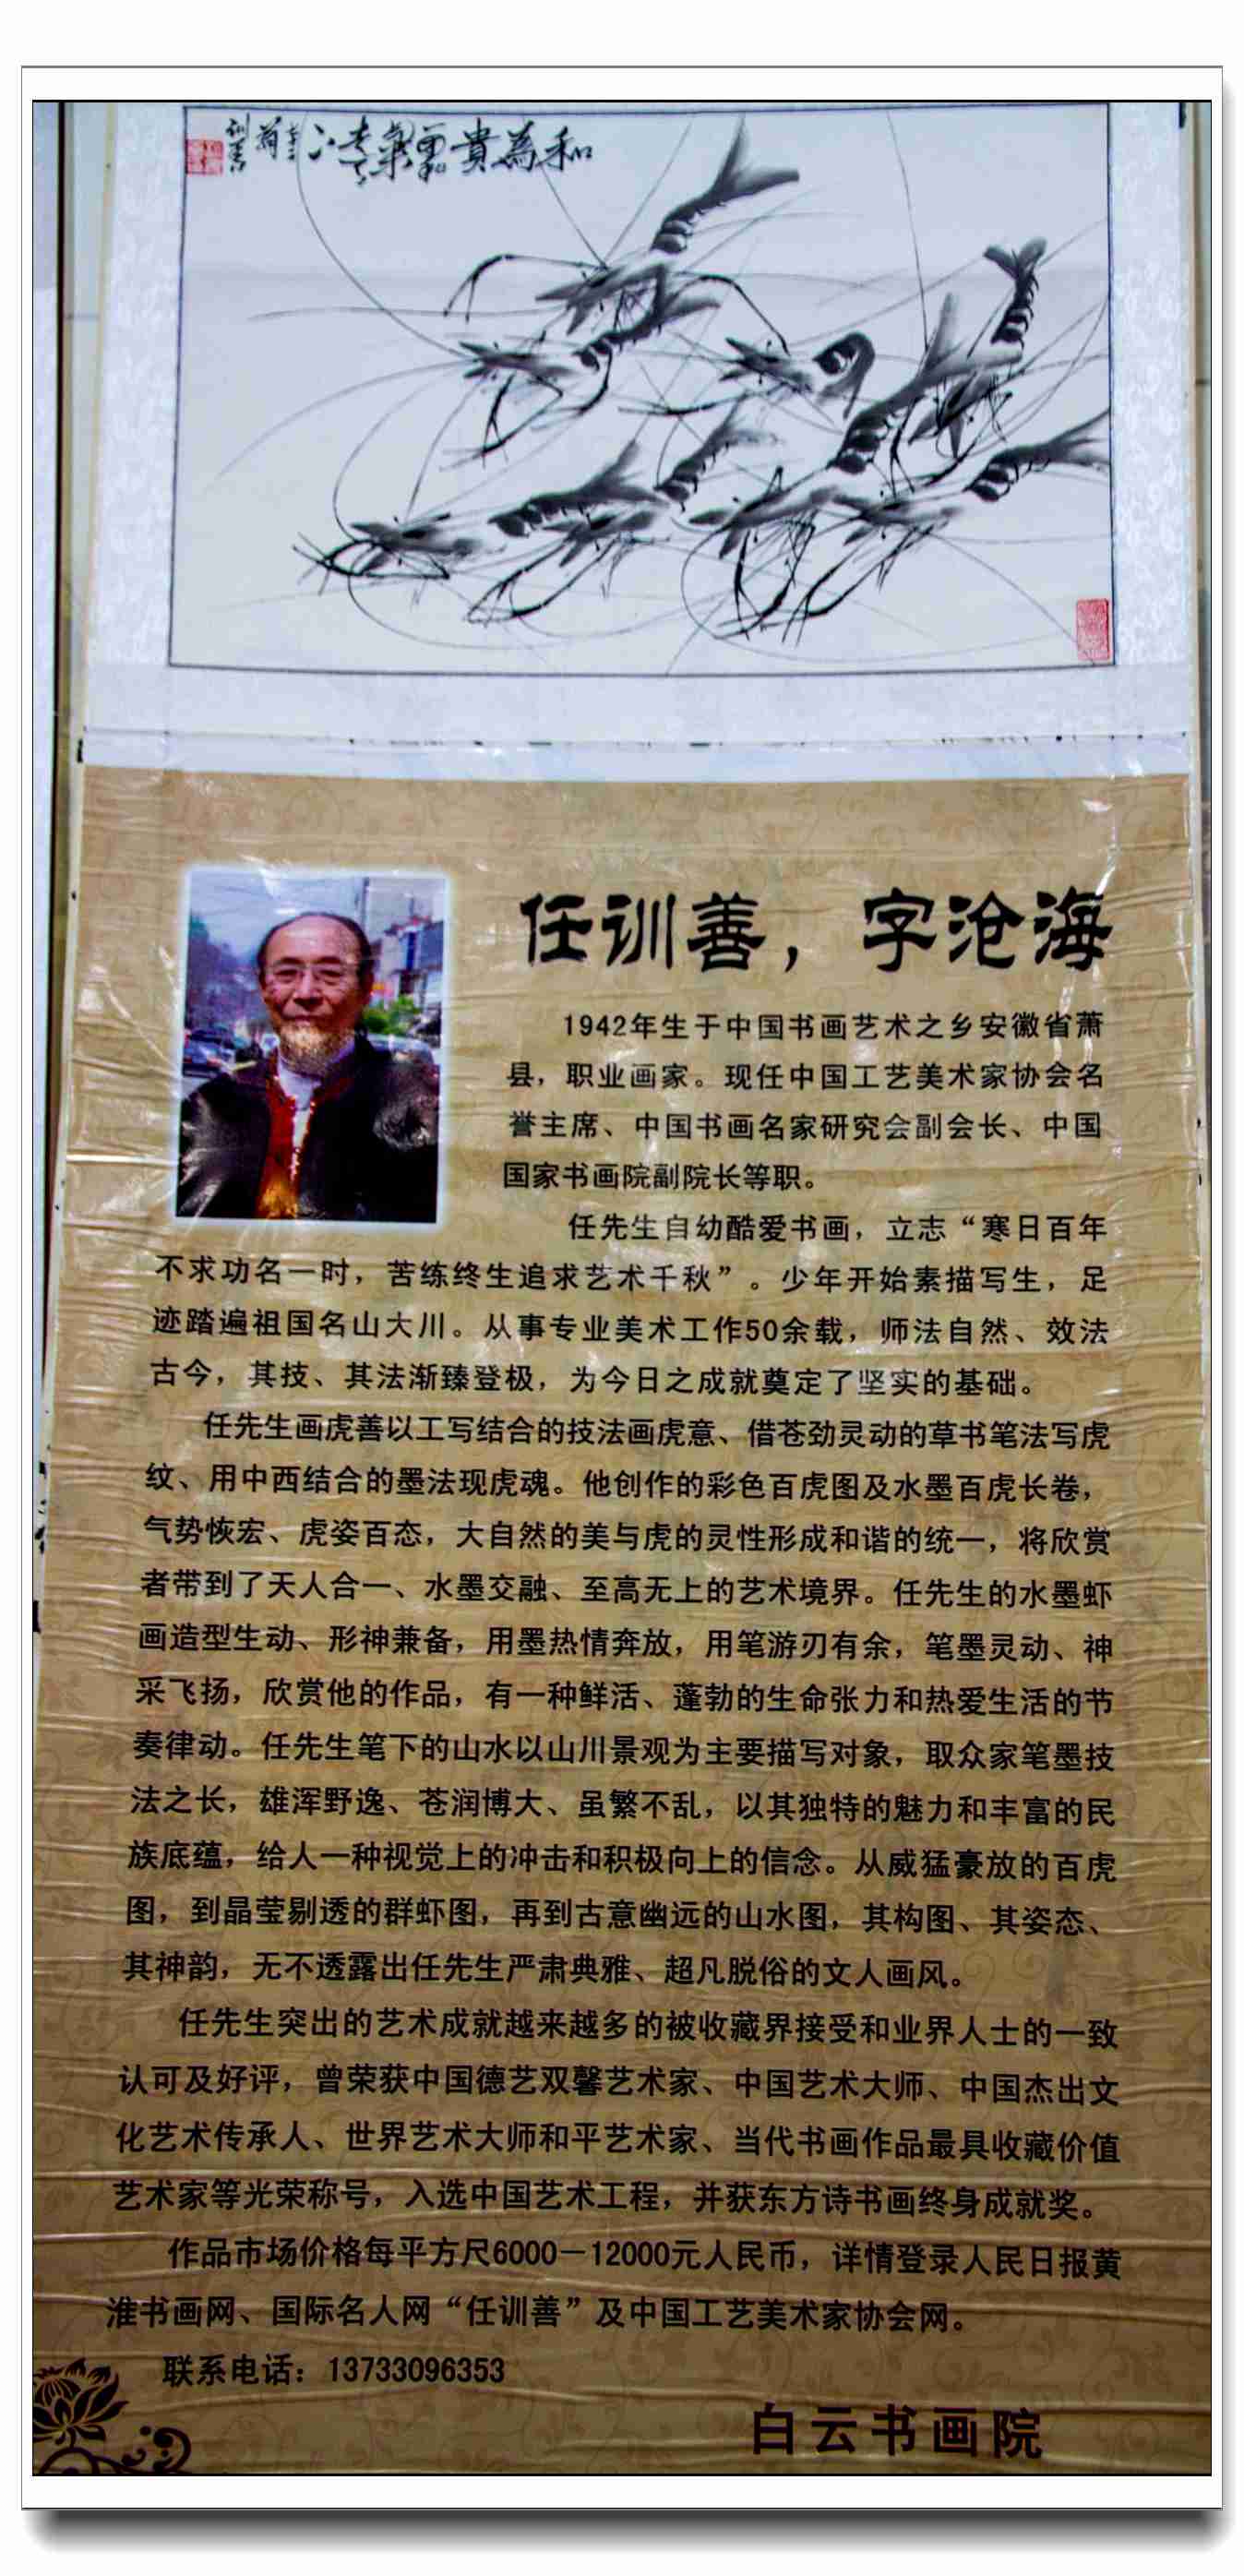 和為貴
任训善，字沧海
1942年生于中国书画艺术之乡安徽省萧
县，职业画家。现任中国工艺美术家协会名
誉主席、中国书画名家研究会副会长、中国
国家书画院副院长等职。
任先生自幼酷爱书画，立志“寒日百年
不求功名一时，苦练终生追求艺术千秋”。少年开始素描写生，足
迹踏遍祖国名山大川。从事专业美术工作50余载，师法自然、效法
古今，其技、其法渐臻登极，为今日之成就奠定了坚实的基础。
任先生画虎善以工写结合的技法画虎意、借苍劲灵动的草书笔法写虎
纹、用中西结合的墨法现虎魂。他创作的彩色百虎图及水墨百虎长卷，
气势恢宏、虎姿百态，大自然的美与虎的灵性形成和谐的统一，将欣赏
者带到了天人合一、水墨交融、至高无上的艺术境界。任先生的水墨虾
画造型生动、形神兼备，用墨热情奔放，用笔游刃有余，笔墨灵动、神
采飞扬，欣赏他的作品，有一种鲜活、蓬勃的生命张力和热爱生活的节
奏律动。任先生笔下的山水以山川景观为主要描写对象，取众家笔墨技
法之长，雄浑野逸、苍润博大、虽繁不乱，以其独特的魅力和丰富的民
族底蕴，给人一种视觉上的冲击和积极向上的信念。从威猛豪放的百虎
图，到晶莹剔透的群虾图，再到古意幽远的山水图，其构图、其姿态、
其神韵，无不透露出任先生严肃典雅、超凡脱俗的文人画风。
任先生突出的艺术成就越来越多的被收藏界接受和业界人士的一致
认可及好评，曾荣获中国德艺双馨艺术家、中国艺术大师、中国杰出文
化艺术传承人、世界艺术大师和平艺术家、当代书画作品最具收藏价值
艺术家等光荣称号，入选中国艺术工程，并获东方诗书画终身成就奖。
作品市场价格每平方尺6000－12000元人民币，详情登录人民日报黄
淮书画网、国际名人网“任训善”及中国工艺美术家协会网。
联系电话：13733096353
白云书画院